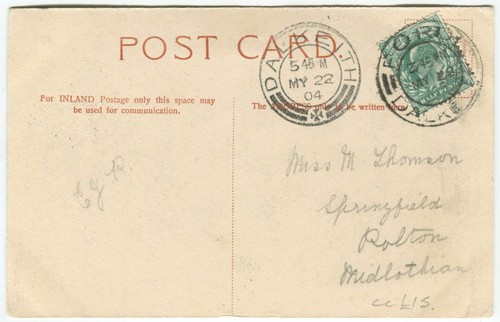 POST CARD.
DALKEITH
5 45 M
MY 22
04
For INLAND Postage only this space may
be used for communication.
The ADDRESS only to be written here
Miss M Thomson
Springfield
Polton
Midlothian
CCLIS.